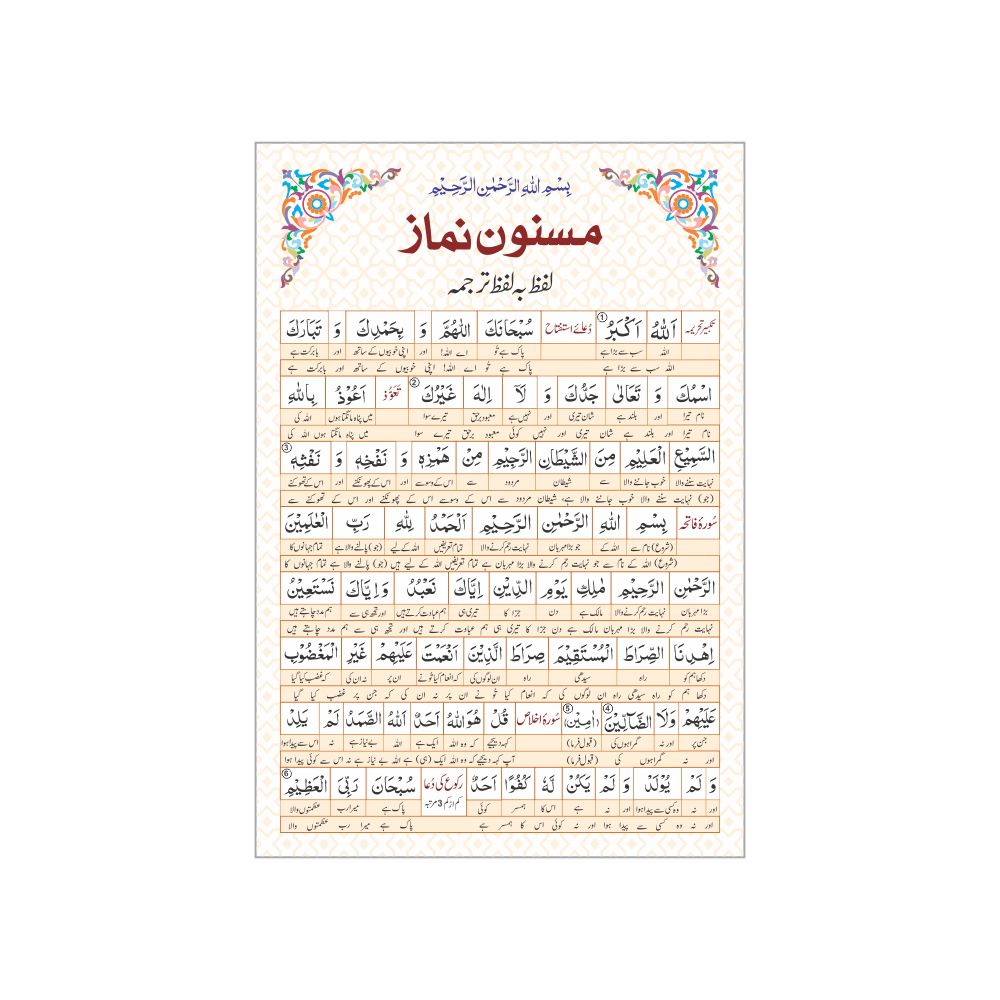 بِسْمِ اللهِ الرَّحْمٰنِ الرَّحِيْمِ
مسنون نماز
لفظ بہ لفظ ترجمہ
تکبیر تحریمہ اَللّٰهُ اَكْبَرُ ① دُعائے استفتاح سُبْحَانَكَ اللّٰهُمَّ وَ بِحَمْدِكَ وَ تَبَارَكَ
اللہ سب سے بڑا ہے پاک ہے تُو اے اللہ! اور اپنی خوبیوں کے ساتھ اور بابرکت ہے
اللہ سب سے بڑا ہے پاک ہے تُو اے اللہ! اپنی خوبیوں کے ساتھ اور بابرکت ہے
اسْمُكَ وَ تَعَالٰى جَدُّكَ وَ لَآ اِلٰهَ غَيْرُكَ ② تعوّذ اَعُوْذُ بِاللّٰهِ
نام تیرا اور بلند ہے شان تیری اور نہیں ہے معبود برحق تیرے سوا میں پناہ مانگتا ہوں اللہ کی
نام تیرا اور بلند ہے شان تیری اور نہیں کوئی معبود برحق تیرے سوا میں پناہ مانگتا ہوں اللہ کی
السَّمِيْعِ الْعَلِيْمِ مِنَ الشَّيْطَانِ الرَّجِيْمِ مِنْ هَمْزِهٖ وَ نَفْخِهٖ وَ نَفْثِهٖ ③
نہایت سننے والا خوب جاننے والا سے شیطان مردود سے اس کے وسوسے اور اس کے پھونکنے اور اس کے تھوکنے
(جو) نہایت سننے والا خوب جاننے والا ہے، شیطان مردود سے اس کے وسوسے اس کے پھونکنے اور اس کے تھوکنے سے
سورۂ فاتحہ بِسْمِ اللهِ الرَّحْمٰنِ الرَّحِيْمِ اَلْحَمْدُ لِلّٰهِ رَبِّ الْعٰلَمِيْنَ
(شروع) نام سے اللہ کے جو بڑا مہربان نہایت رحم کرنے والا تمام تعریفیں اللہ کے لیے (جو) پالنے والا ہے تمام جہانوں کا
(شروع) اللہ کے نام سے جو نہایت رحم کرنے والا بڑا مہربان ہے تمام تعریفیں اللہ کے لیے ہیں (جو) پالنے والا ہے تمام جہانوں کا
الرَّحْمٰنِ الرَّحِيْمِ مٰلِكِ يَوْمِ الدِّيْنِ اِيَّاكَ نَعْبُدُ وَاِيَّاكَ نَسْتَعِيْنُ
بڑا مہربان نہایت رحم کرنے والا مالک ہے دن جزا کا تیری ہی ہم عبادت کرتے ہیں اور تجھ ہی سے ہم مدد چاہتے ہیں
نہایت رحم کرنے والا بڑا مہربان مالک ہے دن جزا کا تیری ہی ہم عبادت کرتے ہیں اور تجھ ہی سے ہم مدد چاہتے ہیں
اِهْدِنَا الصِّرَاطَ الْمُسْتَقِيْمَ صِرَاطَ الَّذِيْنَ اَنْعَمْتَ عَلَيْهِمْ غَيْرِ الْمَغْضُوْبِ
دکھا ہم کو راہ سیدھی راہ ان لوگوں کی کہ انعام کیا تُو نے ان پر نہ ان کی کہ غضب کیا گیا
دکھا ہم کو راہ سیدھی راہ ان لوگوں کی کہ انعام کیا تُو نے ان پر نہ ان کی کہ جن پر غضب کیا گیا
عَلَيْهِمْ وَلَا الضَّآلِّيْنَ ④ اٰمِيْن ⑤ سورۂ اخلاص قُلْ هُوَ اللهُ اَحَدٌ اَللهُ الصَّمَدُ لَمْ يَلِدْ
جن پر اور نہ گمراہوں کی (قبول فرما) کہہ دیجیے کہ وہ اللہ ایک ہے اللہ بے نیاز ہے نہ اس سے پیدا ہوا
اور نہ گمراہوں کی (قبول فرما) آپ کہہ دیجیے کہ وہ اللہ ایک (ہی) ہے اللہ بے نیاز ہے نہ اس سے کوئی پیدا ہوا
وَ لَمْ يُوْلَدْ وَ لَمْ يَكُنْ لَّهٗ كُفُوًا اَحَدٌ رکوع کی دُعا کم از کم 3 مرتبہ سُبْحَانَ رَبِّيَ الْعَظِيْمِ ⑥
اور نہ وہ کسی سے پیدا ہوا اور نہ ہے اس کا ہمسر کوئی پاک ہے میرا رب عظمتوں والا
اور نہ وہ کسی سے پیدا ہوا اور نہ کوئی اس کا ہمسر ہے پاک ہے میرا رب عظمتوں والا